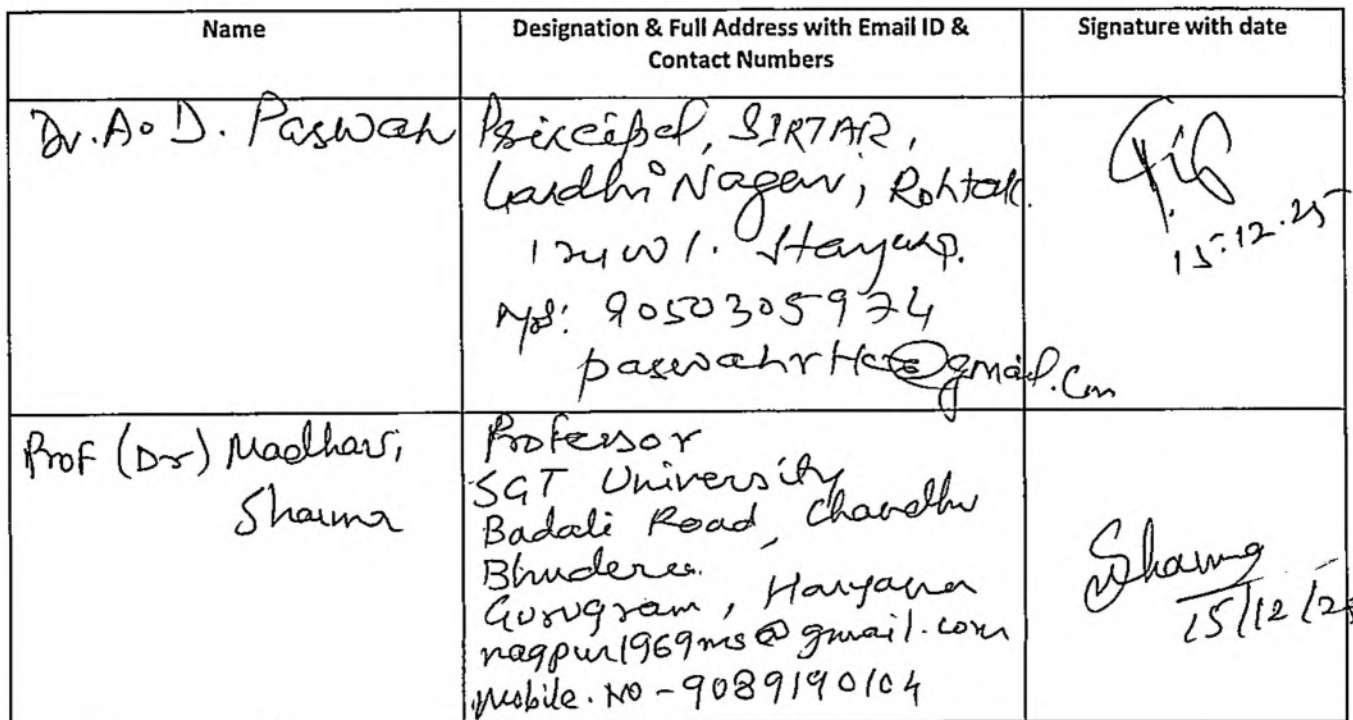 Name
Designation & Full Address with Email ID &
Contact Numbers
Signature with date
Dr. A. D. Paswan
Principal, SIRTAR,
Gandhi Nagar, Rohtak.
124001. Haryana.
Mob: 9050305974
@gmail.com
15.12.25
Prof (Dr) Madhavi
Sharma
Professor
SGT University
Badali Road, Chandhu
Bhudera
Gurugram, Haryana
nagpur1969ms@gmail.com
Mobile. No - 9089190104
Sharma
15/12/25